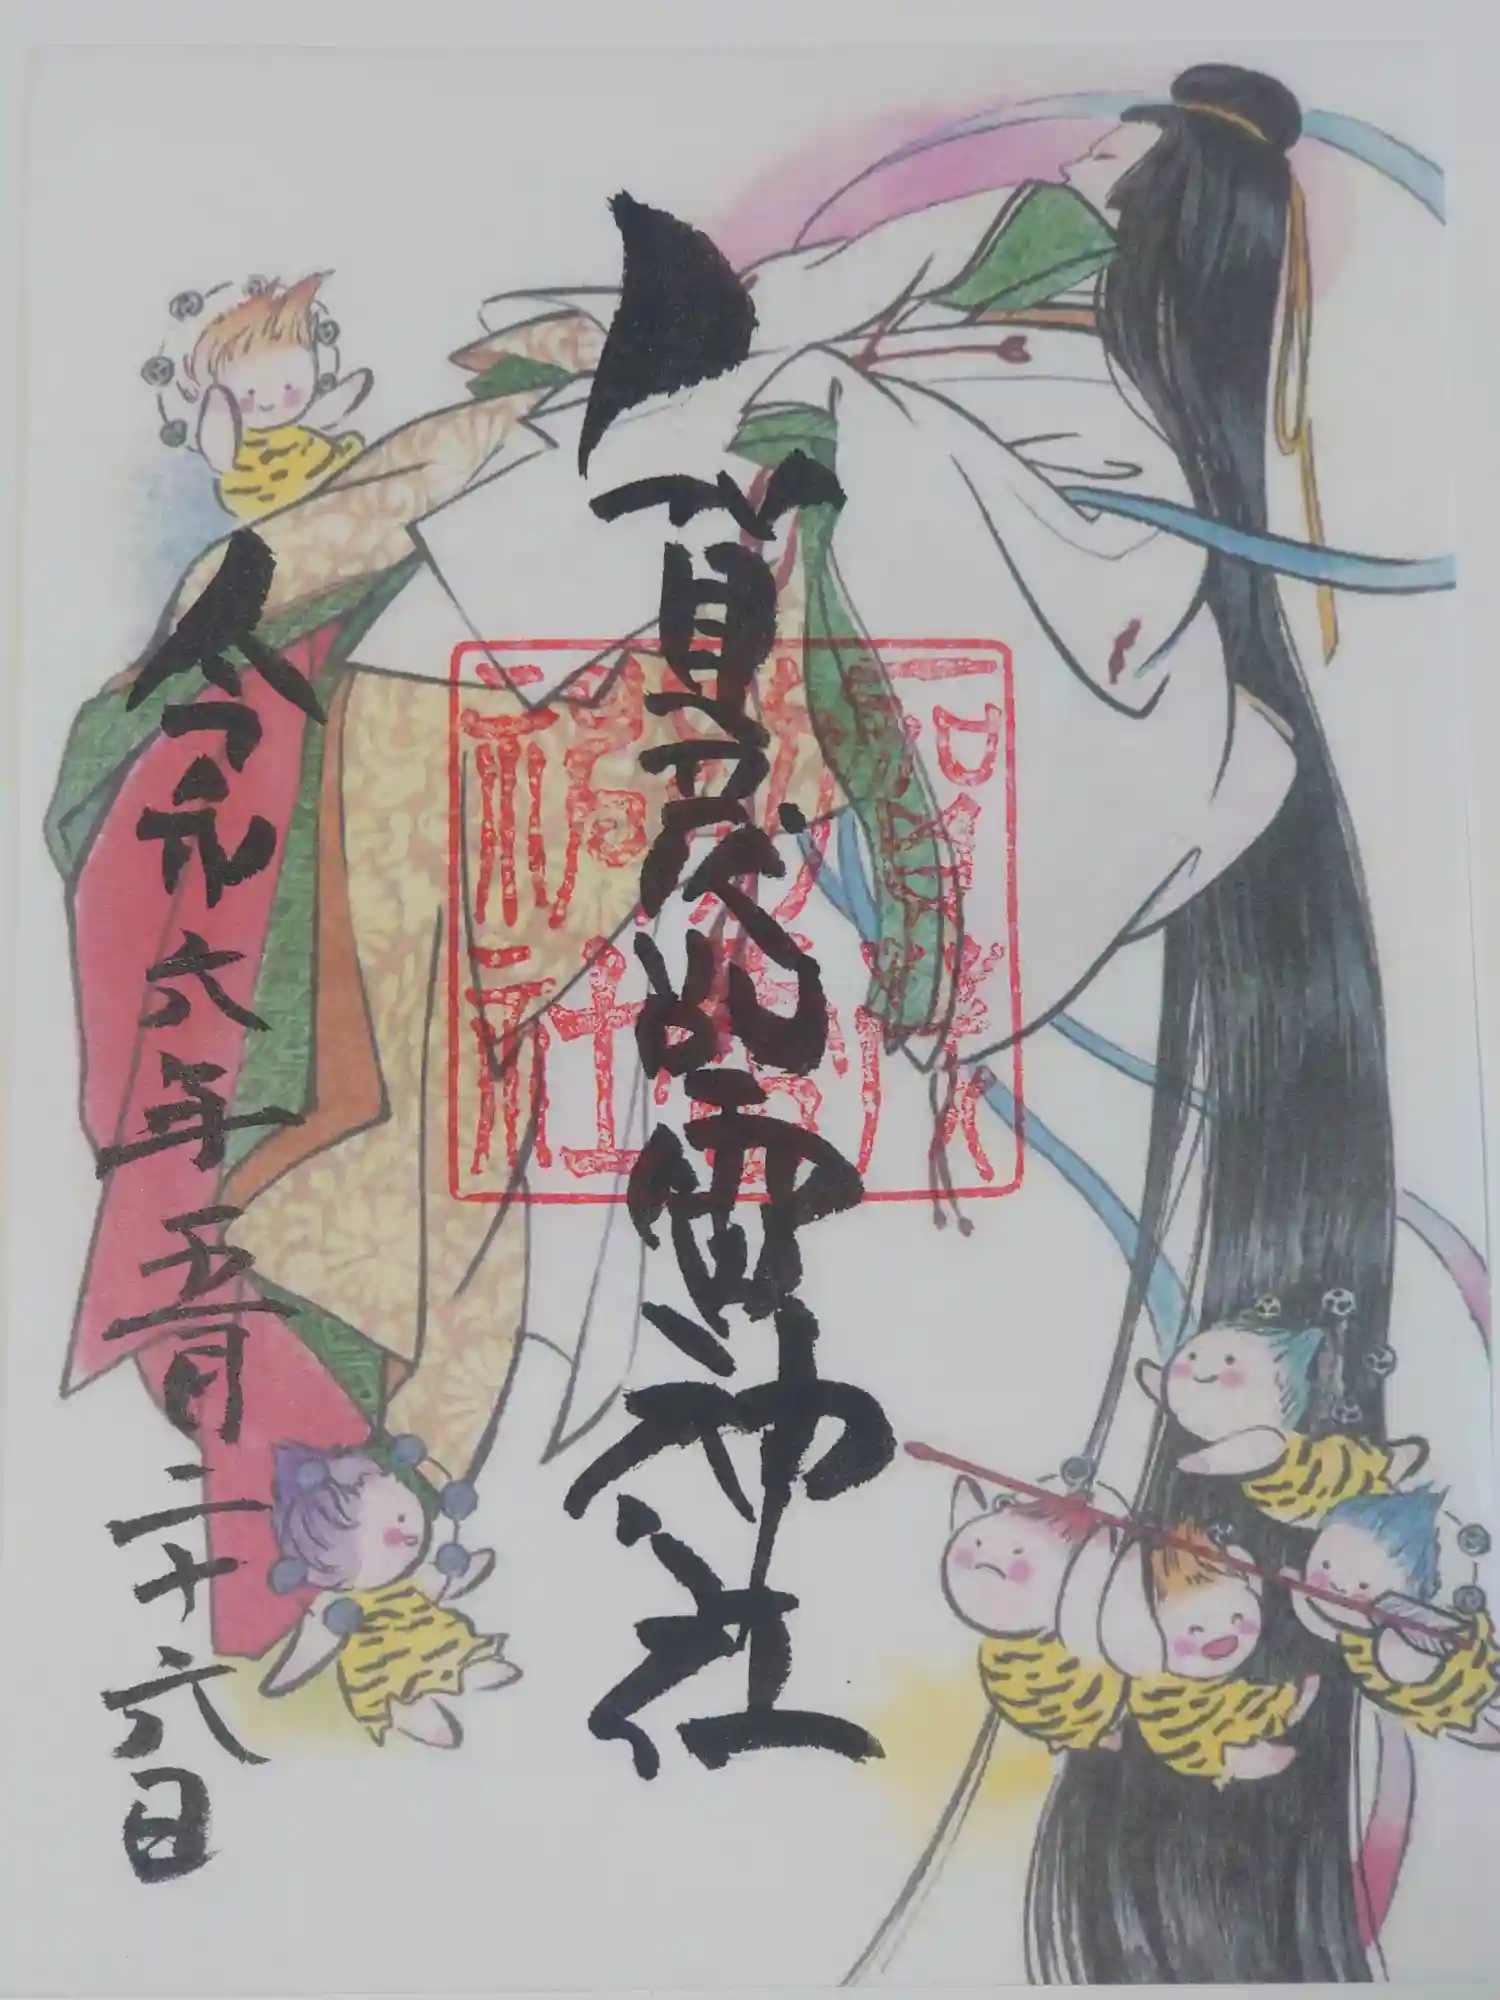 賀茂別雷神社
令和六年五月二十六日